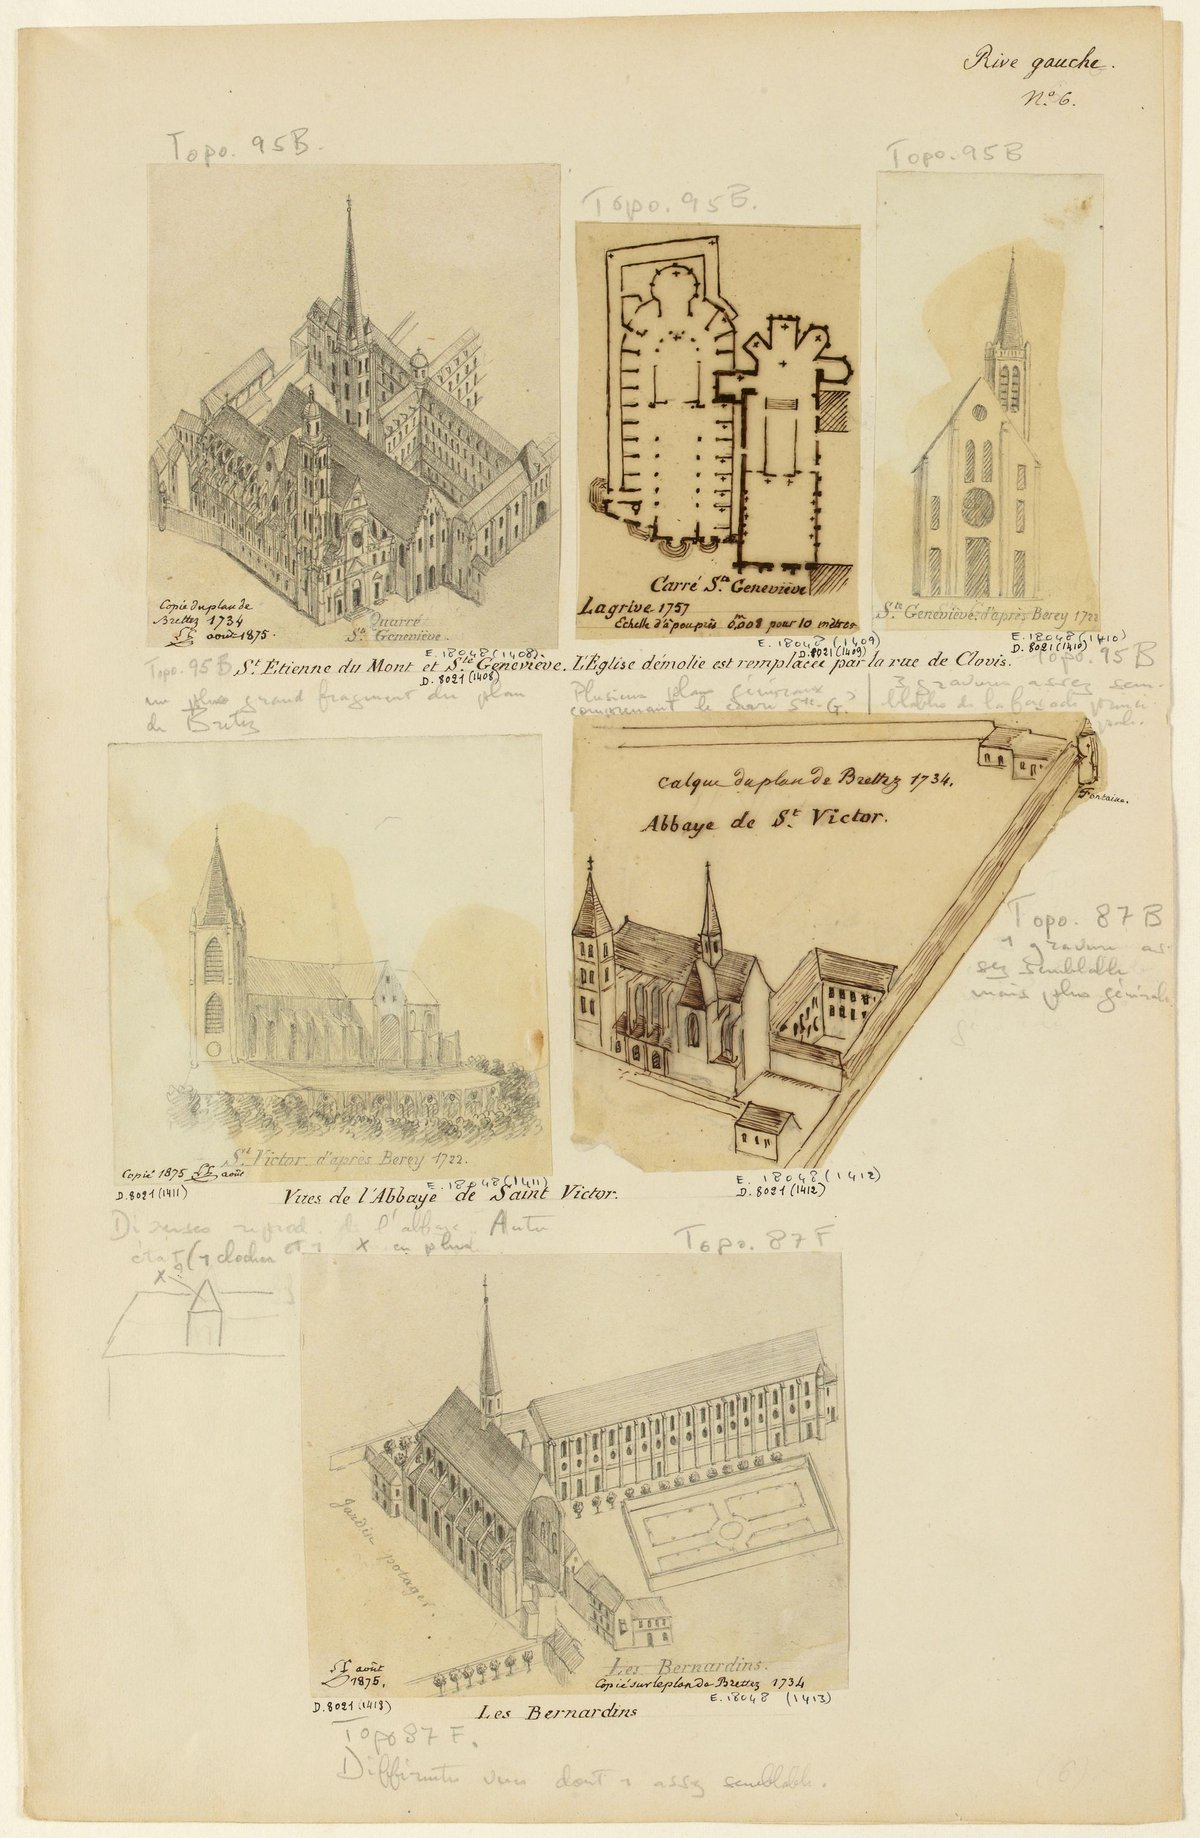 Rive gauche.
Nº 6.
Topo. 95B.
Topo. 95B.
Topo. 95B
Copie du plan de
Brettez 1734
août 1875.
Quarré
Ste Geneviève.
Carré Ste Geneviève
Lagrive 1757
Echelle d'à peu près 0,m008 pour 10 mètres
Ste Geneviève, d'après Berey 1722
E. 18048 (1408).
D. 8021 (1408)
E. 18048 (1409)
D. 8021 (1409)
E. 18048 (1410)
D. 8021 (1410)
St Etienne du Mont et Ste Geneviève. L'Eglise démolie est remplacée par la rue de Clovis.
Topo. 95 B
un plus grand fragment du plan
de Bretez
Plusieurs plans généraux
comprenant le carré Ste-G.
Topo. 95 B
3 gravures assez sem-
blables de la façade princi-
pale.
calque du plan de Brettez 1734.
Abbaye de St Victor.
Fontaine.
Topo. 87 B
1 gravure as-
sez semblable
mais plus générale
St Victor, d'après Berey 1722.
Copié 1875 août
D. 8021 (1411)
E. 18048 (1411)
Vues de l'Abbaye de Saint Victor.
E. 18048 (1412)
D. 8021 (1412)
Diverses reprod. de l'abbaye. Autre
état (1 clocher et 1 x en plus
x
Topo. 87 F
jardin potager.
août
1875.
Les Bernardins.
Copié sur le plan de Brettez 1734
D. 8021 (1413)
E. 18048 (1413)
Les Bernardins
Topo 87 F.
Différentes vues dont 1 assez semblable.
(6)